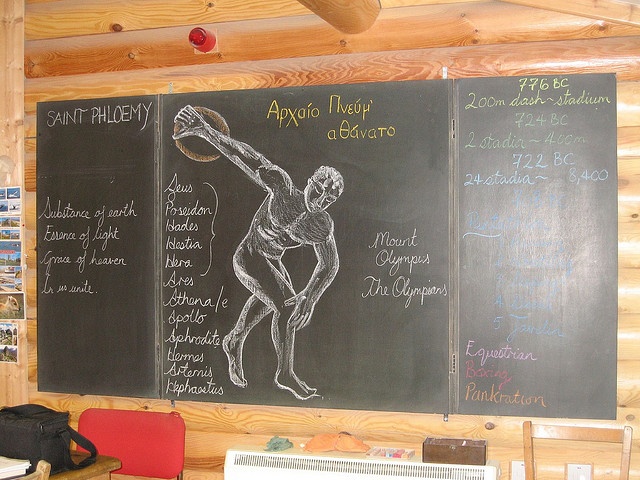 SAINT PHLOEMY
Substance of earth
Essence of light
Grace of heaven
In us unite.
Αρχαίο Πνεύμ'
αθάνατο
Zeus
Poseidon
Hades
Hestia
Hera
Ares
Athena/e
Apollo
Aphrodite
Hermes
Artemis
Hephaestus
Mount
Olympus
The Olympians
776 BC
200m dash - stadium
724 BC
2 stadia ~ 400m
722 BC
24 stadia ~ 8,400
Equestrian
Boxing
Pankration